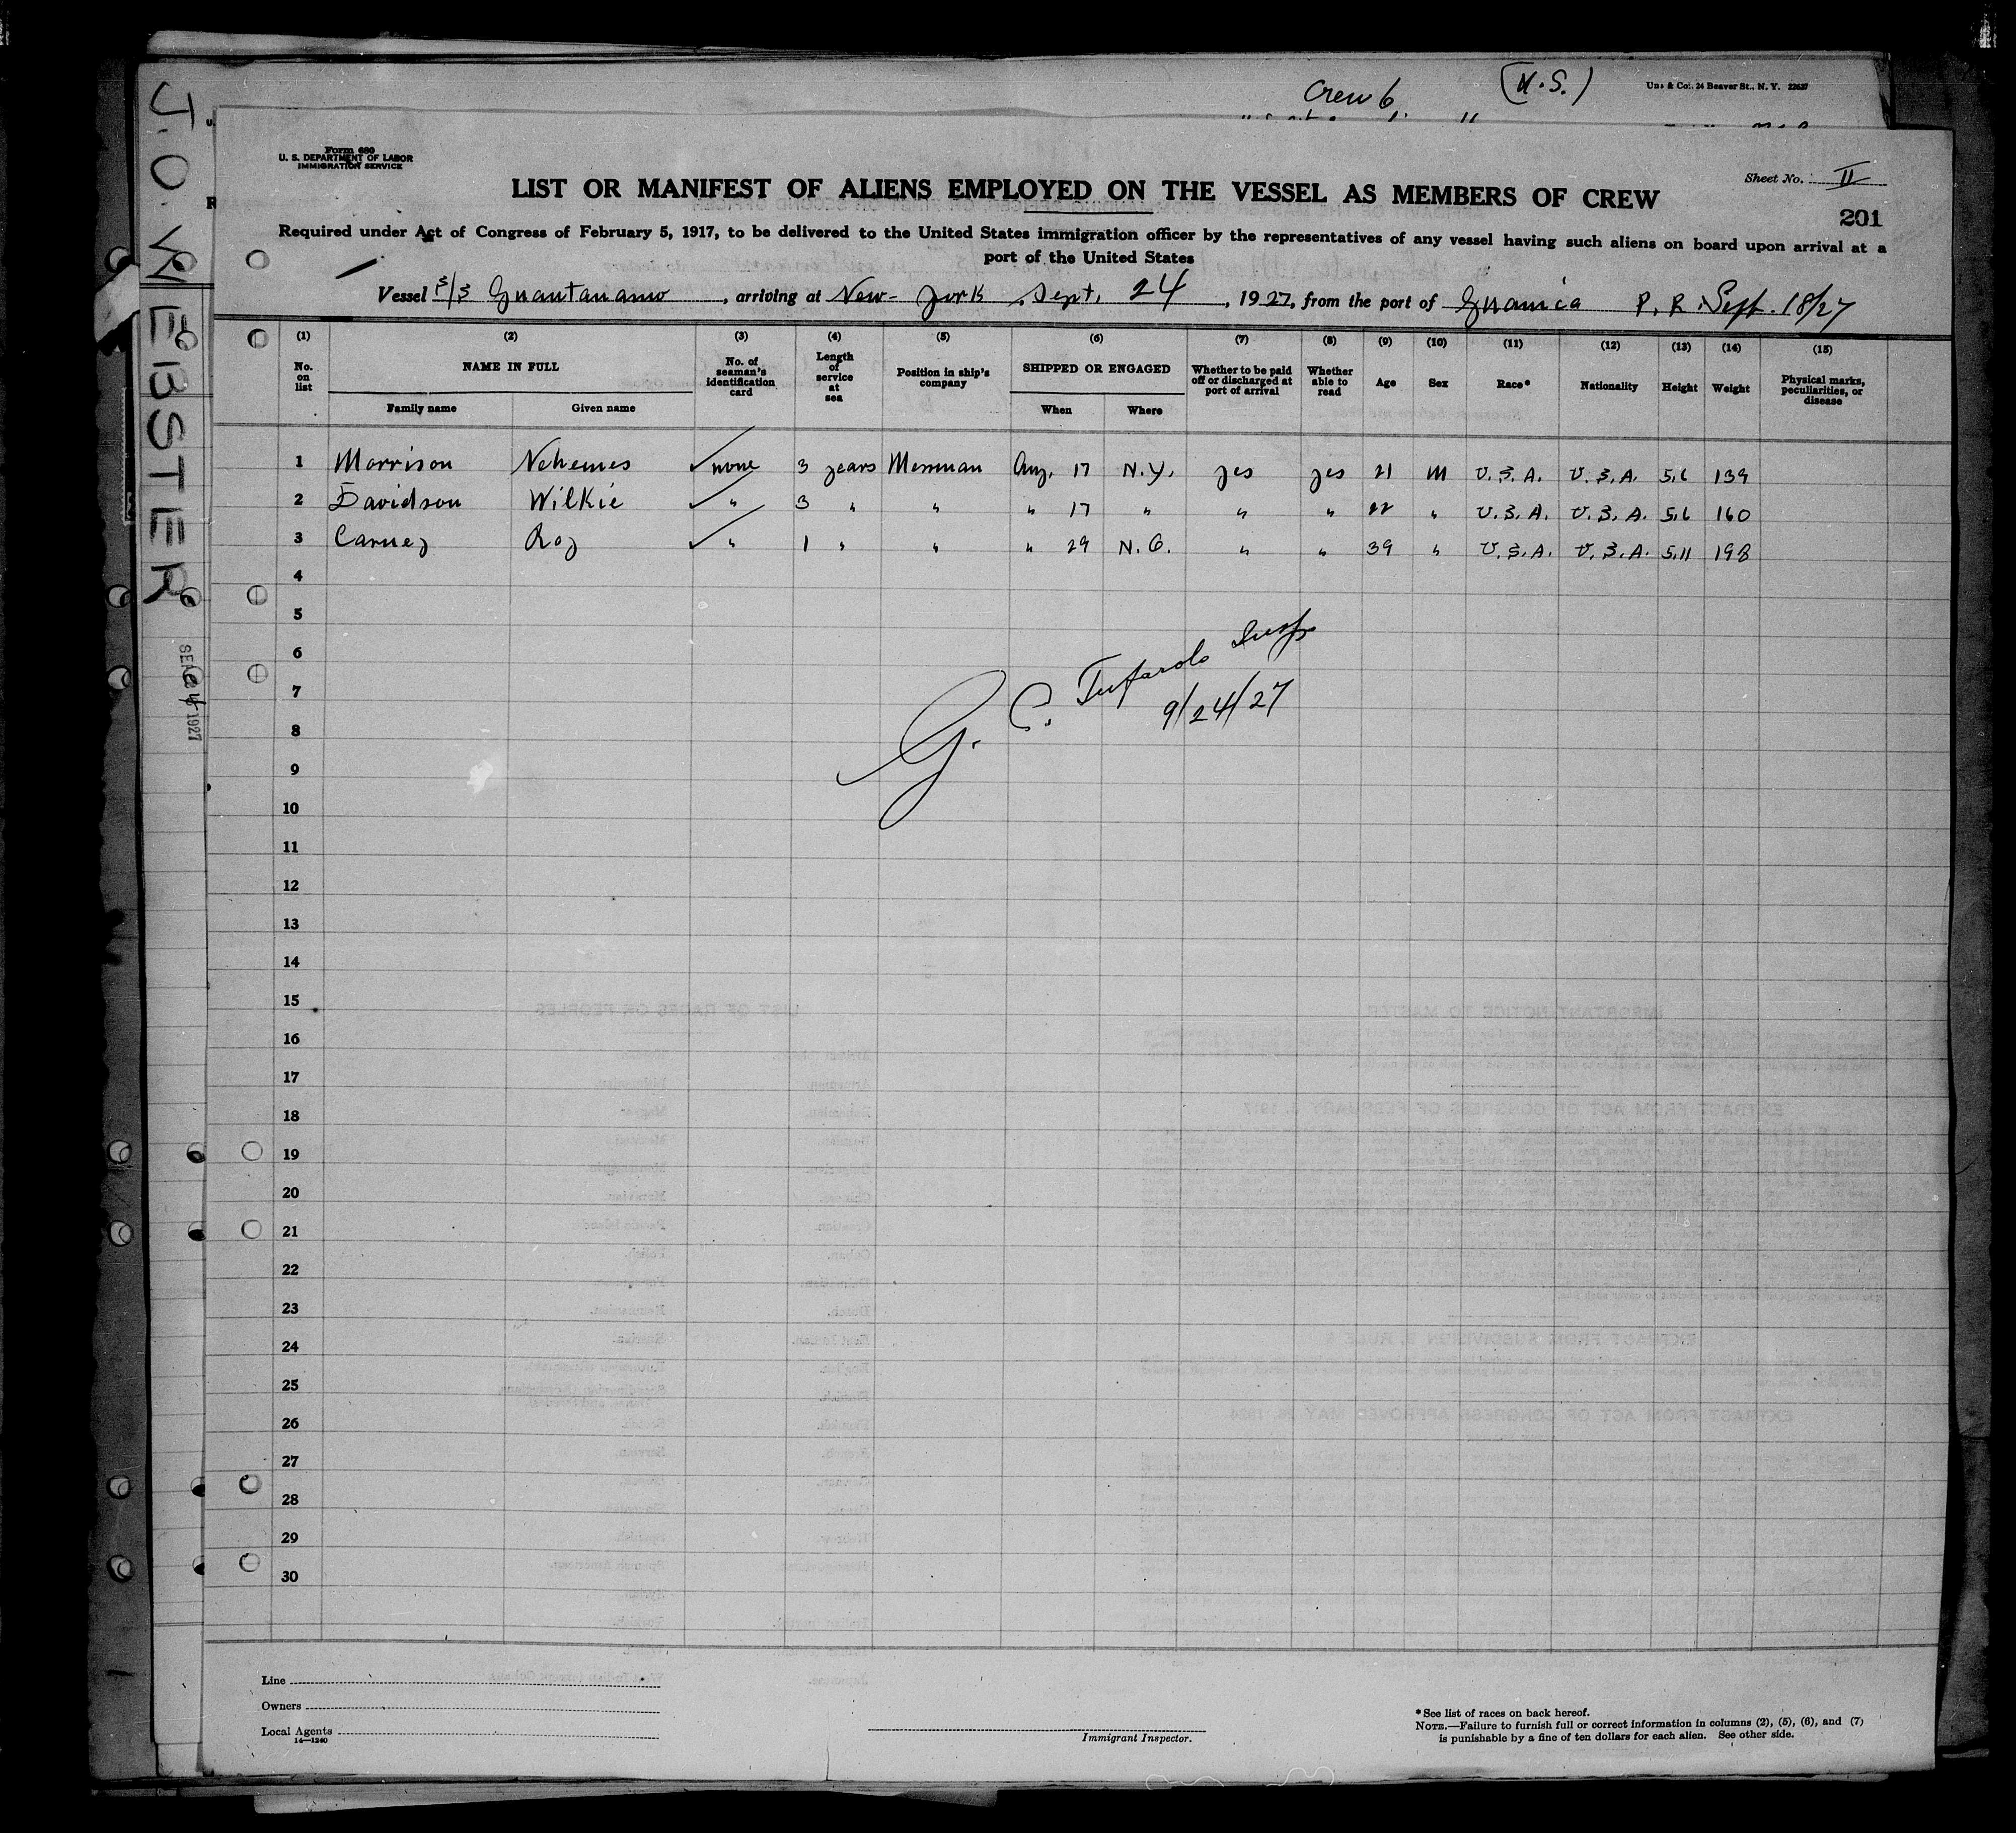 Crew 6 (U.S.)
24 Beaver St., N. Y.
Form 680
U. S. DEPARTMENT OF LABOR
IMMIGRATION SERVICE
Sheet No. II
LIST OR MANIFEST OF ALIENS EMPLOYED ON THE VESSEL AS MEMBERS OF CREW
201
Required under Act of Congress of February 5, 1917, to be delivered to the United States immigration officer by the representatives of any vessel having such aliens on board upon arrival at a
port of the United States
Vessel S/S Guantanamo, arriving at New-York Sept. 24, 1927, from the port of Guanica P. R. Sept. 18/27
(1) (2) (3) (4) (5) (6) (7) (8) (9) (10) (11) (12) (13) (14) (15)
No. on list NAME IN FULL No. of seaman's identification card Length of service at sea Position in ship's company SHIPPED OR ENGAGED Whether to be paid off or discharged at port of arrival Whether able to read Age Sex Race* Nationality Height Weight Physical marks, peculiarities, or disease
Family name Given name When Where
1 Morrison Nehemes none 3 years Messman Aug. 17 N.Y. yes yes 21 M U.S.A. U.S.A. 5.6 139
2 Davidson Wilkie " 3 " " " 17 " " " 22 " U.S.A. U.S.A. 5.6 160
3 Carney Roy " 1 " " " 29 N.O. " " 39 " U.S.A. U.S.A. 5.11 198
4
5
6
7
8
9
10
11
12
13
14
15
16
17
18
19
20
21
22
23
24
25
26
27
28
29
30
G. C. Tufarolo Insp
9/24/27
Line
Owners
Local Agents
14—1240
Immigrant Inspector.
*See list of races on back hereof.
NOTE.—Failure to furnish full or correct information in columns (2), (5), (6), and (7)
is punishable by a fine of ten dollars for each alien. See other side.
J. O. WEBSTER
1927